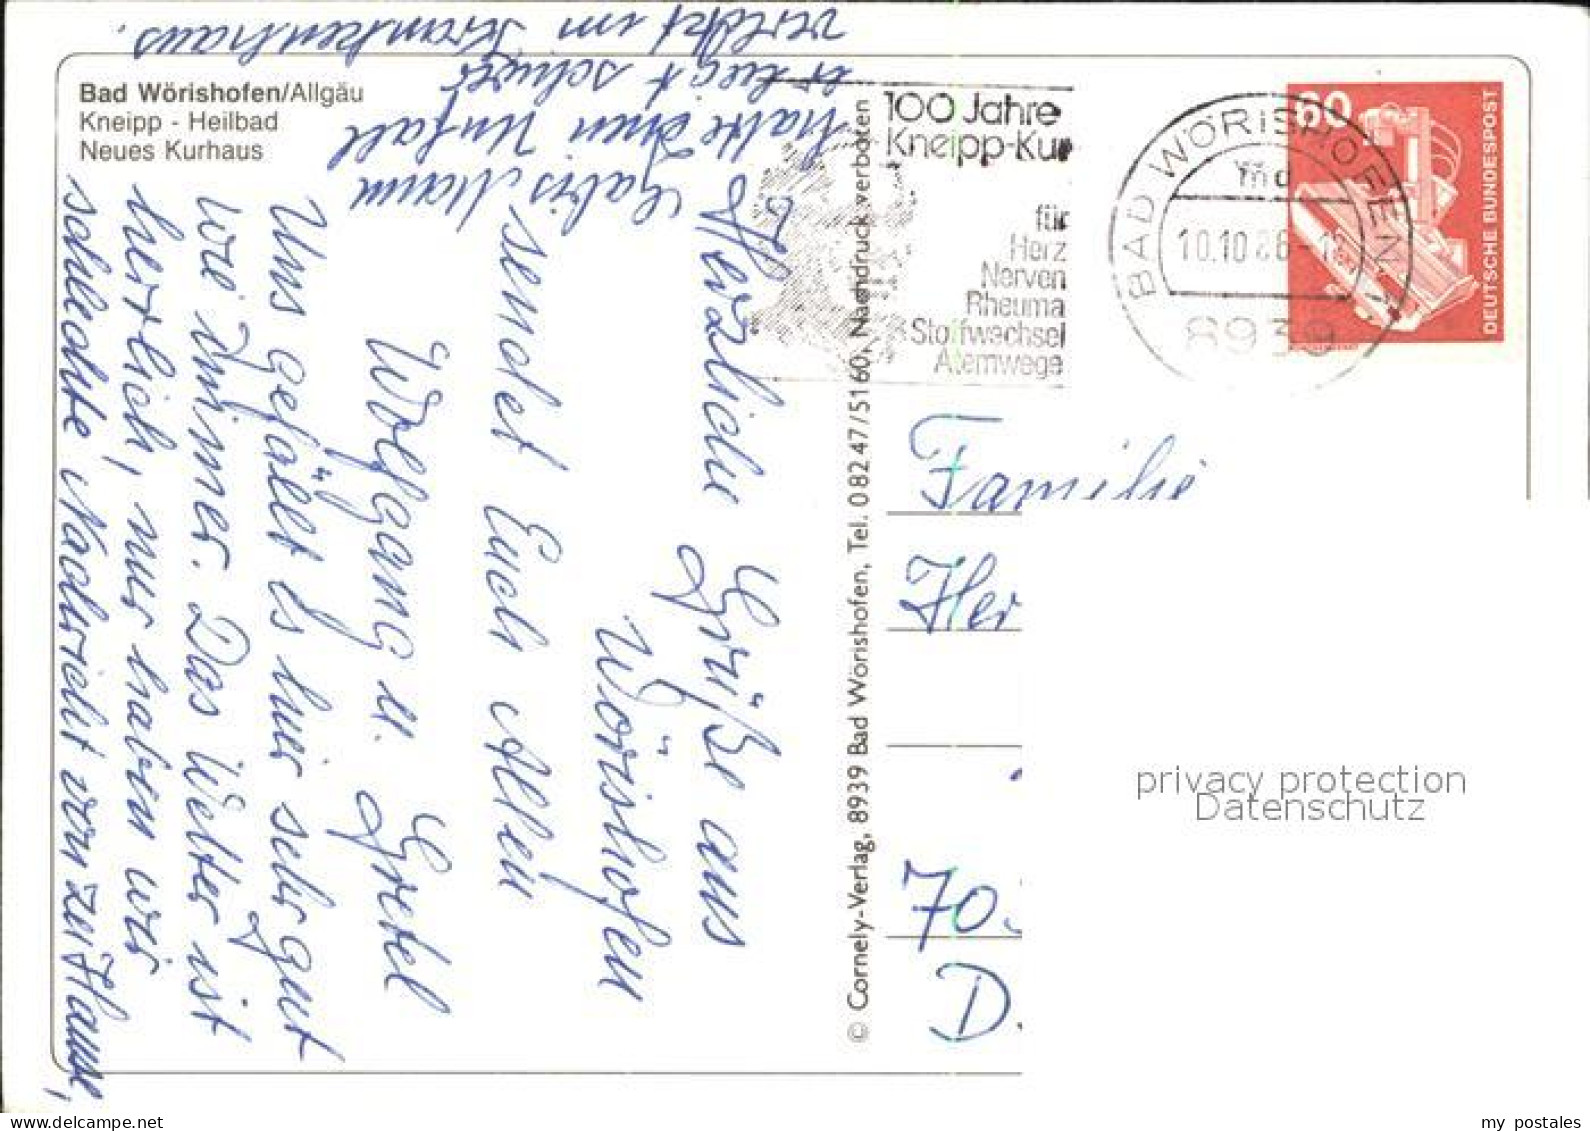 Bad Wörishofen/Allgäu
Kneipp - Heilbad
Neues Kurhaus
Herzliche Grüße aus
Wörishofen
sendet Euch Allen
Wolfgang u. Gretel
Uns gefällt es hier sehr gut
wie immer. Das Wetter ist
herrlich, nur haben wir
schlechte Nachricht von zu Hause,
Gabis Mann
hatte einen Unfall
er liegt schwer
verletzt im Krankenhaus.
© Cornely-Verlag, 8939 Bad Wörishofen, Tel. 08247/5160, Nachdruck verboten
100 Jahre
Kneipp-Kur
für
Herz
Nerven
Rheuma
Stoffwechsel
Atemwege
BAD WÖRISHOFEN 1
md
10.10.88-18
8939
60
DEUTSCHE BUNDESPOST
Familie
Her
70
D.
privacy protection
Datenschutz
my postales